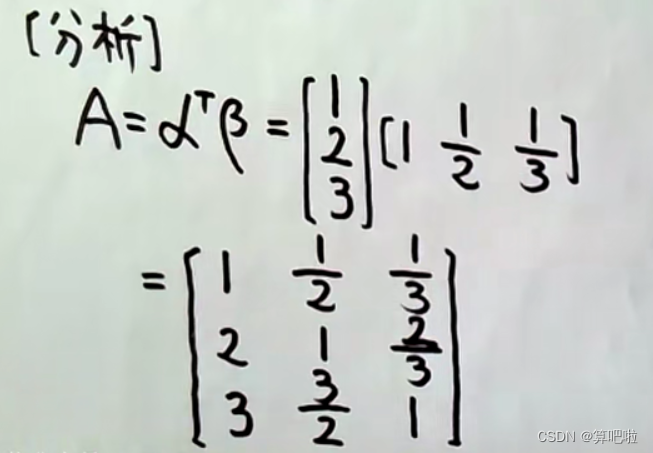 [分析]
A = α^T β = [1 2 3] [1 1/2 1/3]
= [1 1/2 1/3
2 1 2/3
3 3/2 1]
CSDN @算吧啦